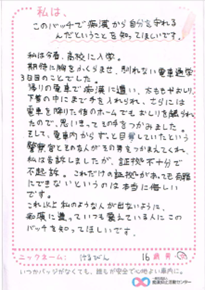 私は、
このバッチで痴漢から自分を守れる
んだということを知ってほしいです。
私は今春、高校に入学。
期待に胸をふくらませ、別れない電車通学
3日目のことでした。
帰りの電車で痴漢に遭い、太ももやおしり、
下着の中にまで手を入れられ、さらには
電車を降りた後のホームでもおしりを触られ
たので、思いきってその手をつかみました。
そして、電車内からずっと目撃していたという
警察官とそのなんがその男をつかまえてくれ、
私は告訴しましたが、証拠不十分で
不起訴。これだけの証拠があっても有罪
にできないというのは本当に悔しい
です。
これ以上私のようなんが出ないように、
痴漢に遭っていつも驚えている人にこの
バッチを知ってほしいです。
ニックネーム: けるぴん 16歳
いつかバッジがなくても、誰もが安全で心地よい車内に。